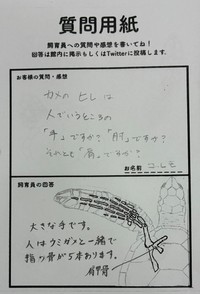 質問用紙
飼育員への質問や感想を書いてね！
回答は館内に掲示もしくはTwitterに投稿します.
お客様の質問・感想
カメのヒレは
人でいうところの
「手」ですか？「肘」ですか？
それとも「肩」ですか？
お名前 コルモ
飼育員の回答
大きな手です。
人はウミガメと一緒で
指の骨が5本あります。
肩甲骨